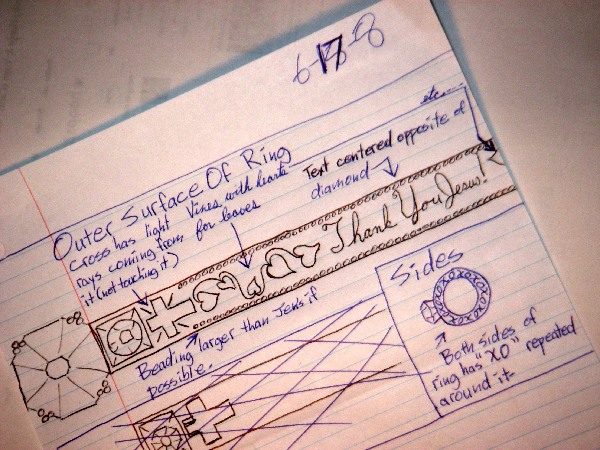 17
etc....
Outer Surface Of Ring
Cross has light
rays coming from
it (not touching it)
Vines with hearts
for leaves
Text centered opposite of
diamond
Thank You Jesus!
Beading larger than Jen's if
possible.
Sides
Both sides of
ring has "XO" repeated
around it